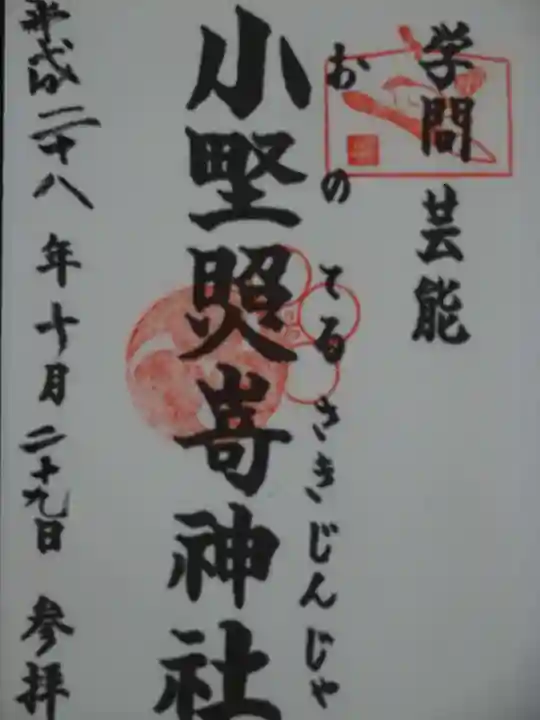 学問芸能
おのてるさきじんじゃ
小野照嵜神社
平成二十八年十月二十九日 参拝